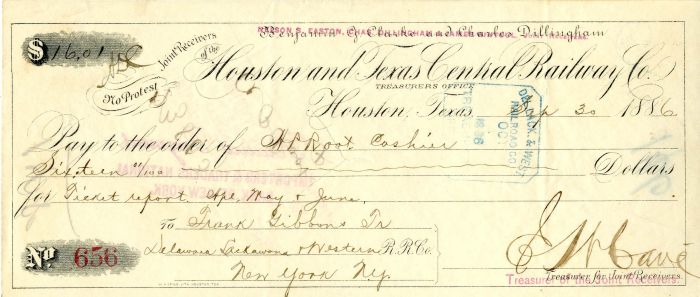 Benjamin G. Clarke and Charles Dillingham
NELSON S. EASTON, CHAS. DILLINGHAM & JAMES
$ 16.01
Joint Receivers
of the
No Protest
Houston and Texas Central Railway Co.
TREASURERS OFFICE
Houston, Texas, Sep 30 1886
DEL. LACK. & WEST.
RAILROAD CO.
OCT
1886
Pay to the order of A P Root Cashier
Sixteen 01/100 Dollars
for Ticket report, Apl, May & June,
To Frank Gibbons Tr
Delaware Lackawana & Western R.R.Co.
New York Ny.
No 656
E W Cave
Treasurer for Joint Receivers.
Treasurer of the Joint Receivers.